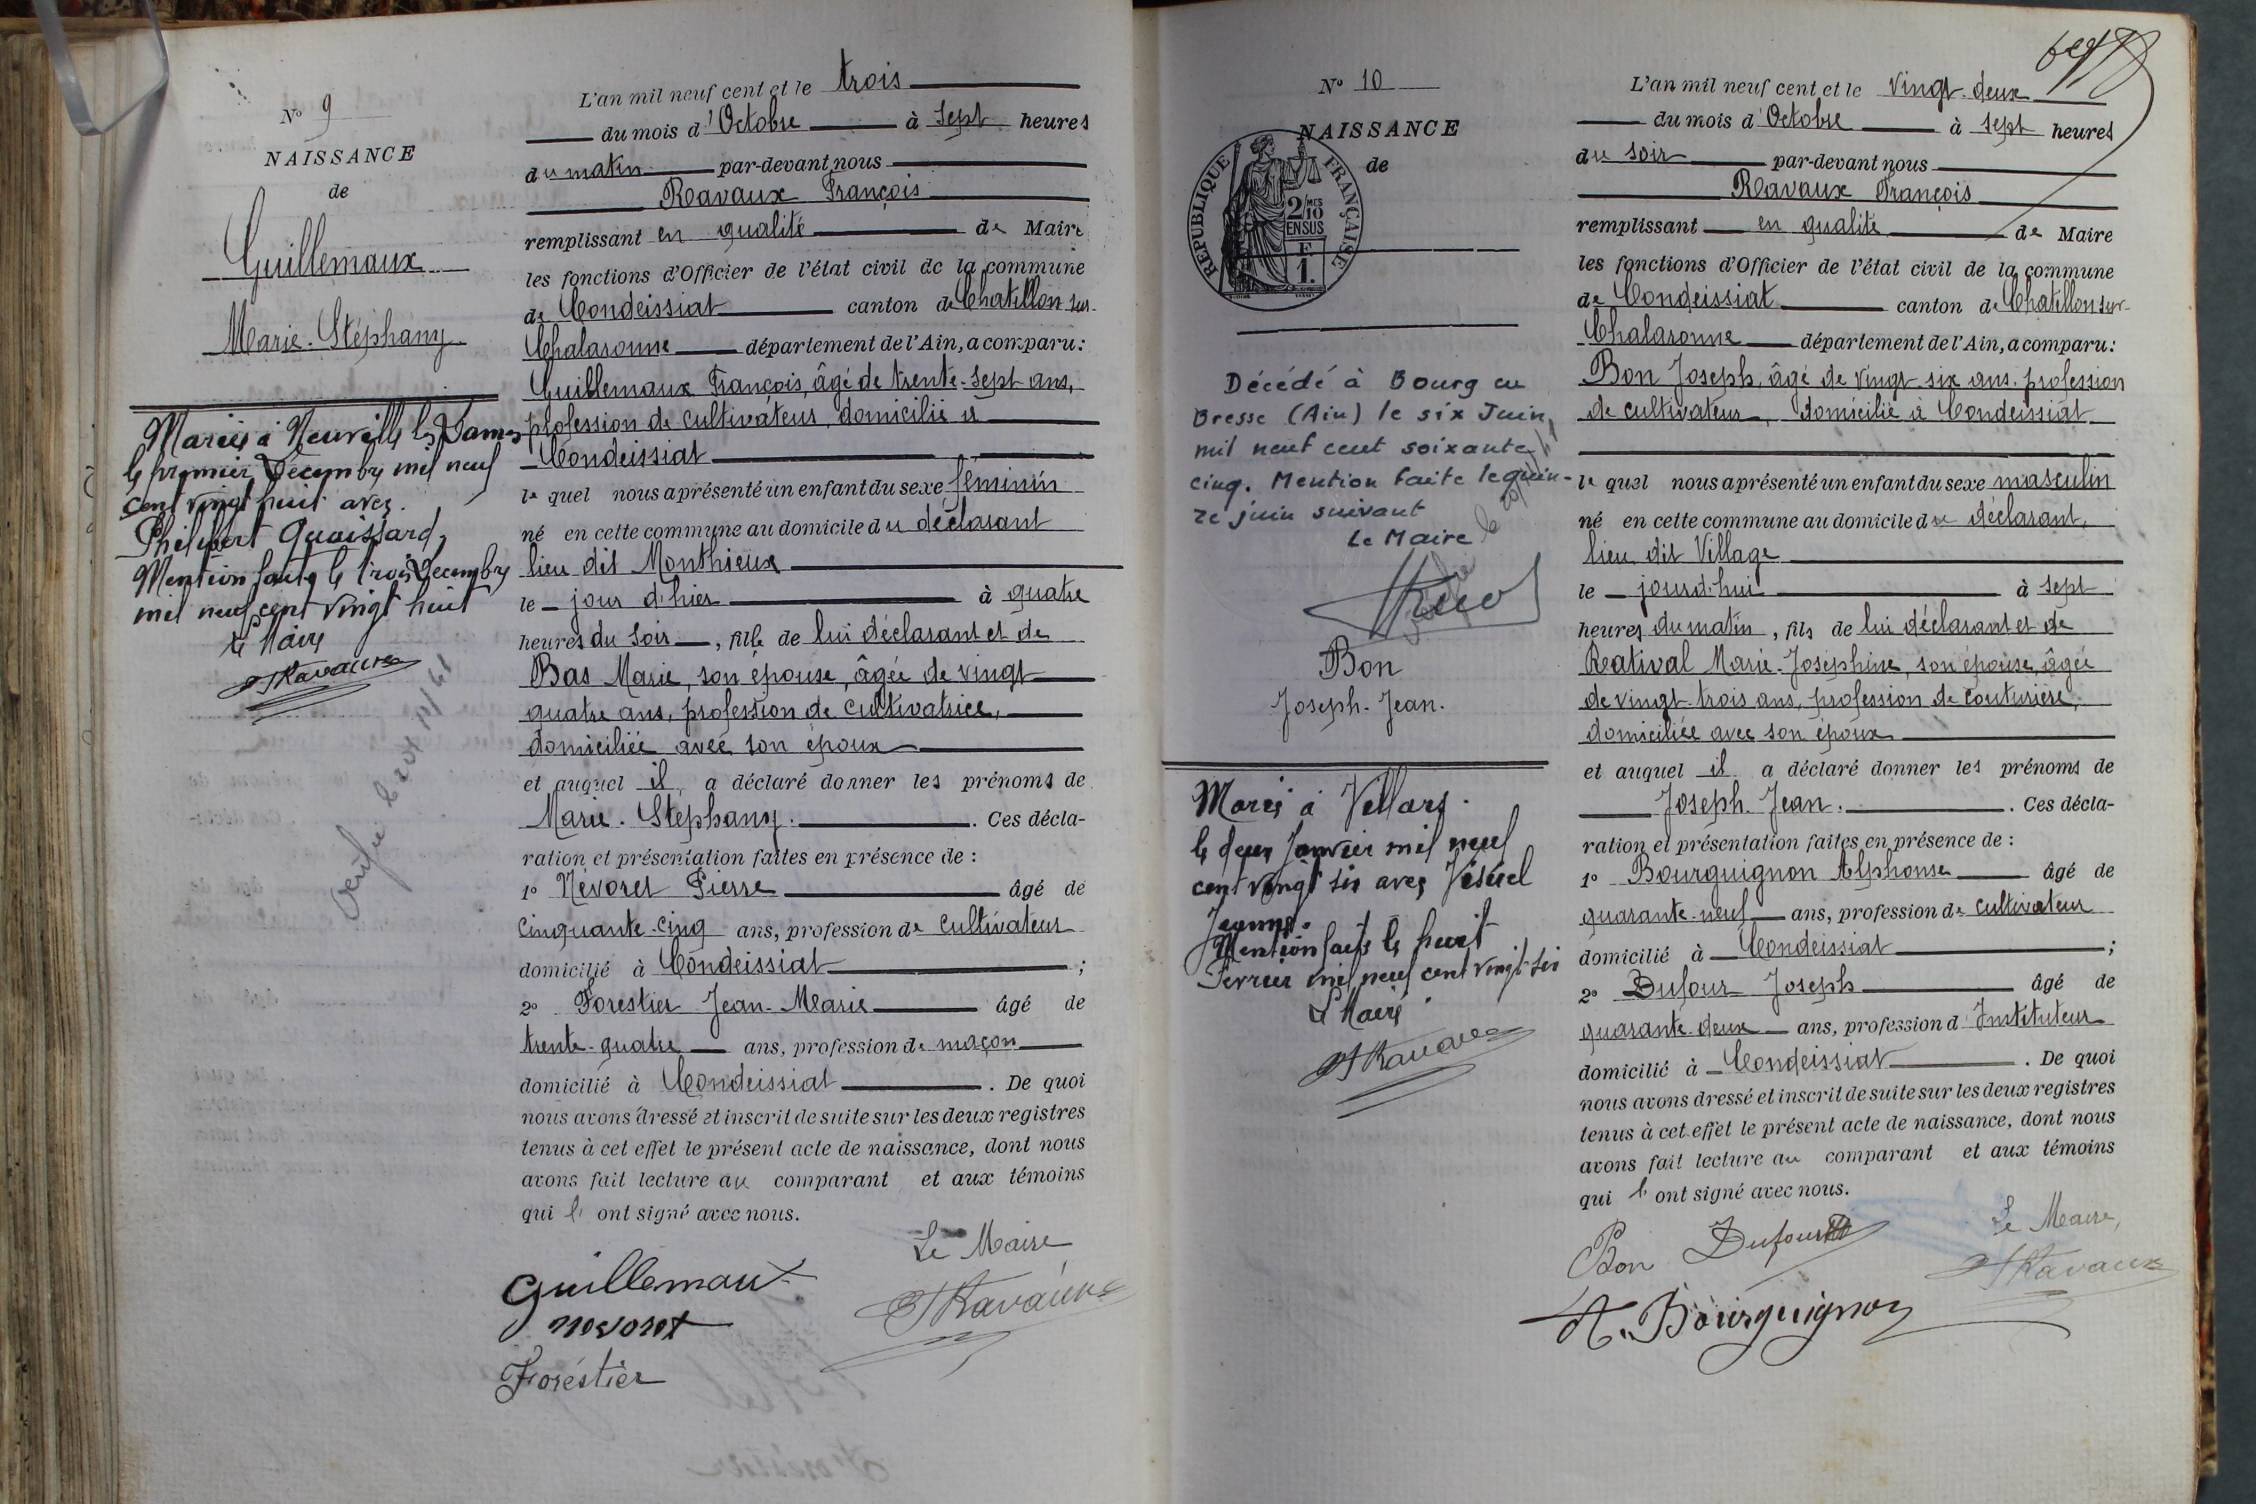 N° 9
NAISSANCE
de
Guillemaux
Marie-Stéphany
Mariée à Neuville les Dames
le premier Décembre mil neuf
cent vingt huit avec
Philibert Quaissard,
Mention faite le trois Décembre
mil neuf cent vingt huit
le Maire
Ravaux
L'an mil neuf cent et le trois
du mois d'Octobre à sept heures
du matin par-devant nous
Ravaux François
remplissant en qualité de Maire
les fonctions d'Officier de l'état civil de la commune
de Condeissiat canton de Chatillon sur-
Chalaronne département de l'Ain, a comparu:
Guillemaux François, âgé de trente-sept ans,
profession de cultivateur, domicilié à
Condeissiat
le quel nous a présenté un enfant du sexe féminin
né en cette commune au domicile du déclarant
lieu dit Monthieux
le jour d'hier à quatre
heures du soir, fille de lui déclarant et de
Bas Marie, son épouse, âgée de vingt
quatre ans, profession de cultivatrice,
domiciliée avec son époux
et auquel il a déclaré donner les prénoms de
Marie-Stéphany. Ces décla-
ration et présentation faites en présence de :
1° Névoret Pierre âgé de
cinquante-cinq ans, profession de cultivateur
domicilié à Condeissiat ;
2° Forestier Jean-Marie âgé de
trente-quatre ans, profession de maçon
domicilié à Condeissiat. De quoi
nous avons dressé et inscrit de suite sur les deux registres
tenus à cet effet le présent acte de naissance, dont nous
avons fait lecture au comparant et aux témoins
qui l' ont signé avec nous.
Le Maire
Guillemaux
Ravaux
nevoret
Forestier
N° 10
NAISSANCE
de
REPUBLIQUE FRANÇAISE
2/10 MES
EN SUS
F
1.
Décédé à Bourg en
Bresse (Ain) le six Juin
mil neuf cent soixante
cinq. Mention faite le quin-
ze juin suivant
Le Maire
Bon
Joseph-Jean.
Marié à Villars
le deux Janvier mil neuf
cent vingt six avec
Jeanne.
Mention faite le huit
Février mil neuf cent vingt six
Le Maire
Ravaux
L'an mil neuf cent et le vingt-deux
du mois d'Octobre à sept heures
du soir par-devant nous
Ravaux François
remplissant en qualité de Maire
les fonctions d'Officier de l'état civil de la commune
de Condeissiat canton de Chatillon sur-
Chalaronne département de l'Ain, a comparu:
Bon Joseph, âgé de vingt-six ans, profession
de cultivateur, domicilié à Condeissiat
le quel nous a présenté un enfant du sexe masculin
né en cette commune au domicile du déclarant,
lieu dit Village
le jourd'hui à sept
heures du matin, fils de lui déclarant et de
Ratival Marie-Joséphine, son épouse, âgée
de vingt-trois ans, profession de couturière,
domiciliée avec son époux
et auquel il a déclaré donner les prénoms de
Joseph-Jean. Ces décla-
ration et présentation faites en présence de :
1° Bourguignon Alphonse âgé de
quarante-neuf ans, profession de cultivateur
domicilié à Condeissiat ;
2° Dufour Joseph âgé de
quarante-deux ans, profession d'Instituteur
domicilié à Condeissiat. De quoi
nous avons dressé et inscrit de suite sur les deux registres
tenus à cet effet le présent acte de naissance, dont nous
avons fait lecture au comparant et aux témoins
qui l' ont signé avec nous.
Le Maire,
Bon Dufour Ravaux
A. Bourguignon